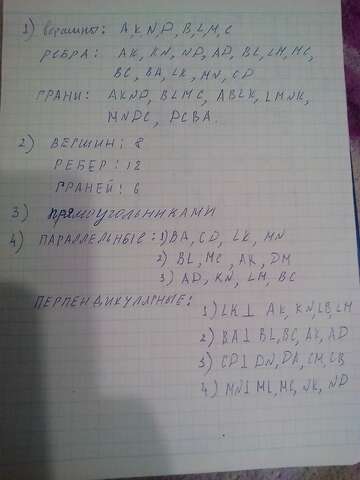 1) вершины: A,K,N,D,B,L,M,C
РЕБРА: AK, KN, ND, AD, BL, LM, MC,
BC, BA, LK, MN, CD
ГРАНИ: AKND, BLMC, ABLK, LMNK,
MNDC, DCBA.
2) ВЕРШИН: 8
РЕБЕР: 12
ГРАНЕЙ: 6
3) ПРЯМОУГОЛЬНИКАМИ
4) ПАРАЛЛЕЛЬНЫЕ: 1) BA, CD, LK, MN
2) BL, MC, AK, DM
3) AD, KN, LM, BC
ПЕРПЕНДИКУЛЯРНЫЕ:
1) LK⊥ AK, KN, LB, LM
2) BA⊥ BL, BC, AK, AD
3) CD⊥ DN, DA, CM, CB
4) MN⊥ ML, MC, NK, ND